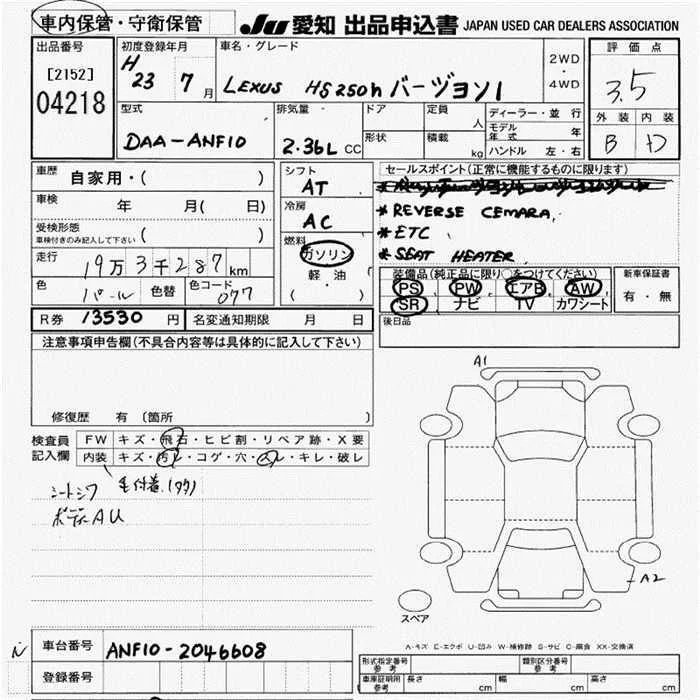 車内保管・守衛保管
JU 愛知 出品申込書 JAPAN USED CAR DEALERS ASSOCIATION
出品番号
[2152]
04218
初度登録年月
H 23 7 月
車名・グレード
LEXUS HS250h バージョン I
2WD
・
4WD
評価点
3.5
外装 内装
B D
型式
DAA-ANF10
排気量
2.36L CC
ドア
形状
定員 人
積載 kg
ディーラー・並行
モデル年式 年
ハンドル 左・右
車歴 自家用・( )
車検 年 月( 日)
受検形態
車検付きのみ記入して下さい ( )
走行 19万3千287km
色 パール 色替 色コード 077
シフト
AT
冷房
AC
燃料
ガソリン
・軽油・
( )
セールスポイント(正常に機能するものに限ります)
* REVERSE CEMARA.
* ETC
* SEAT HEATER
装備品(純正品に限り○をつけてください)
PS PW エアB AW
SR ナビ TV カワシート
新車保証書
有・無
後日品
R券 13530 円 名変通知期限 月 日
注意事項申告欄(不具合内容等は具体的に記入して下さい)
修復歴 有(箇所 )
検査員
記入欄
FW キズ・飛石・ヒビ割・リペア跡・X要
内装 キズ・汚レ・コゲ・穴・スレ・キレ・破レ
シートシワ
ボデーAU
A1
A2
スペア
A-キズ E-エクボ U-凹み W-補修跡 S-サビ C-腐食 XX-交換済
車台番号 ANF10-2046608
登録番号
形式指定番号
参考
類別区分番号
参考
車庫証明用
参考
長さ cm 幅 cm 高さ cm